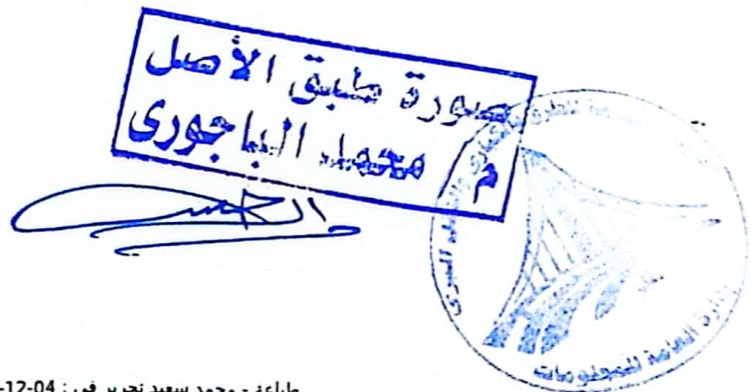 صورة طبق الأصل
م / محمد الباجورى
الإدارة العامة للمعلومات
طباعة - محمد سعيد تحرير في : 04-12-